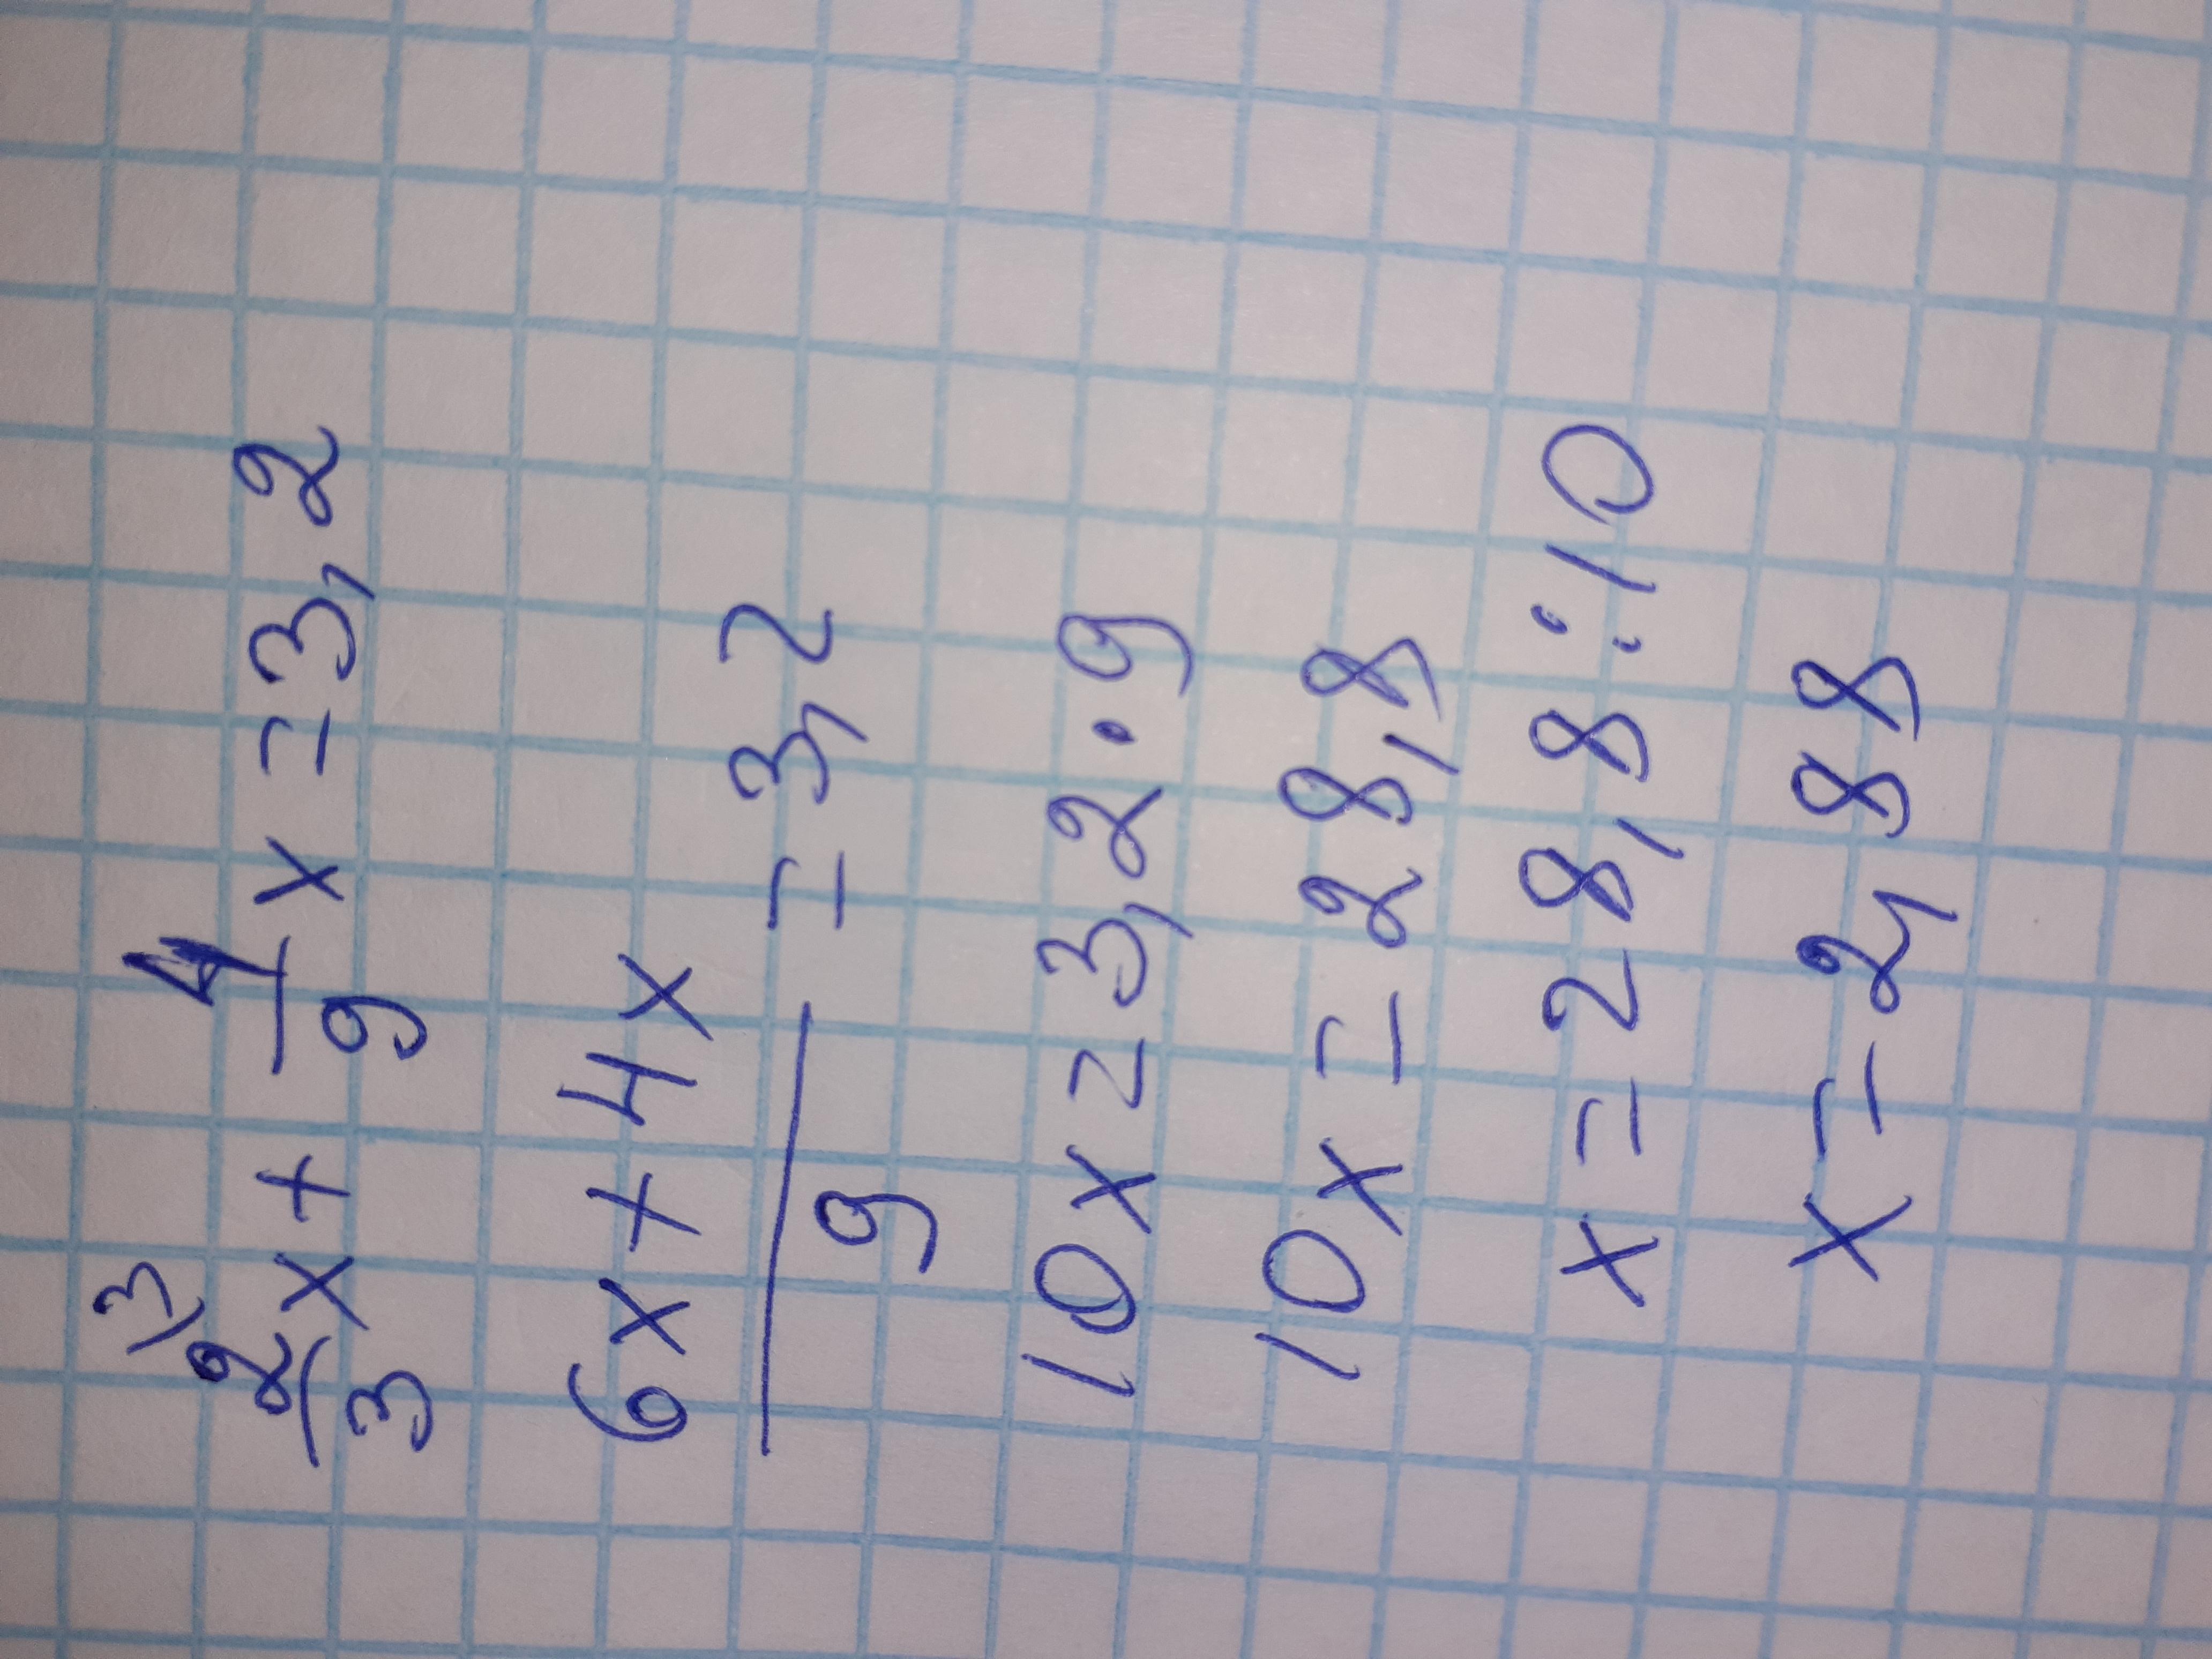 3)
2/3 x + 4/9 x = 3,2
6x + 4x / 9 = 3,2
10x = 3,2 · 9
10x = 28,8
x = 28,8 : 10
x = 2,88